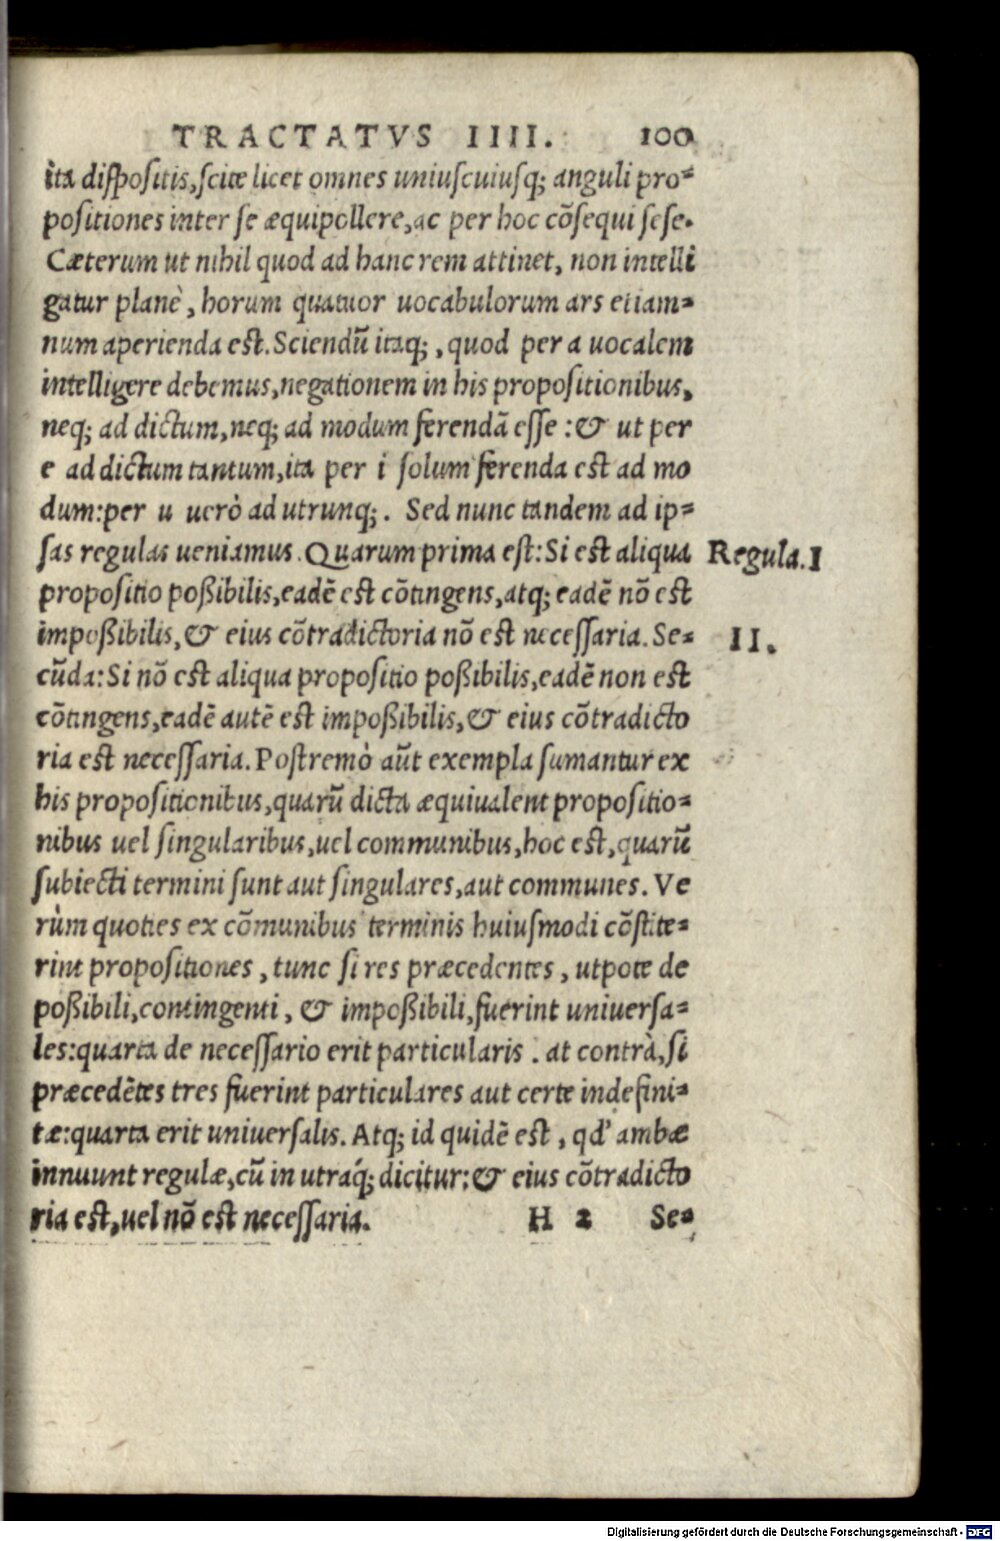 TRACTATVS IIII. 100
ita dispositis, scite licet omnes uniuscuiusq; anguli pro-
positiones inter se æquipollere, ac per hoc cõsequi sese.
Cæterum ut nihil quod ad hanc rem attinet, non intelli
gatur planè, horum quatuor uocabulorum ars etiam-
num aperienda est. Sciendũ itaq;, quod per a uocalem
intelligere debemus, negationem in his propositionibus,
neq; ad dictum, neq; ad modum ferendã esse: & ut per
e ad dictum tantum, ita per i solum ferenda est ad mo
dum: per u uerò ad utrunq;. Sed nunc tandem ad ip-
sas regulas ueniamus. Quarum prima est: Si est aliqua
Regula. I
propositio poßibilis, eadẽ est cõtingens, atq; eadẽ nõ est
impoßibilis, & eius cõtradictoria nõ est necessaria. Se-
II.
cũda: Si nõ est aliqua propositio poßibilis, eadẽ non est
cõtingens, eadẽ autẽ est impoßibilis, & eius cõtradicto
ria est necessaria. Postremò aũt exempla sumantur ex
his propositionibus, quarũ dicta æquiualent propositio-
nibus uel singularibus, uel communibus, hoc est, quarũ
subiecti termini sunt aut singulares, aut communes. Ve
rùm quoties ex cõmunibus terminis huiusmodi cõstite-
rint propositiones, tunc si res præcedentes, utpote de
poßibili, contingenti, & impoßibili, fuerint uniuersa-
les: quarta de necessario erit particularis. at contrà, si
præcedẽtes tres fuerint particulares aut certe indefini-
tæ: quarta erit uniuersalis. Atq; id quidẽ est, qd' ambæ
innuunt regulæ, cũ in utráq; dicitur: & eius cõtradicto
ria est, uel nõ est necessaria.
H 2 Se-
Digitalisierung gefördert durch die Deutsche Forschungsgemeinschaft - DFG